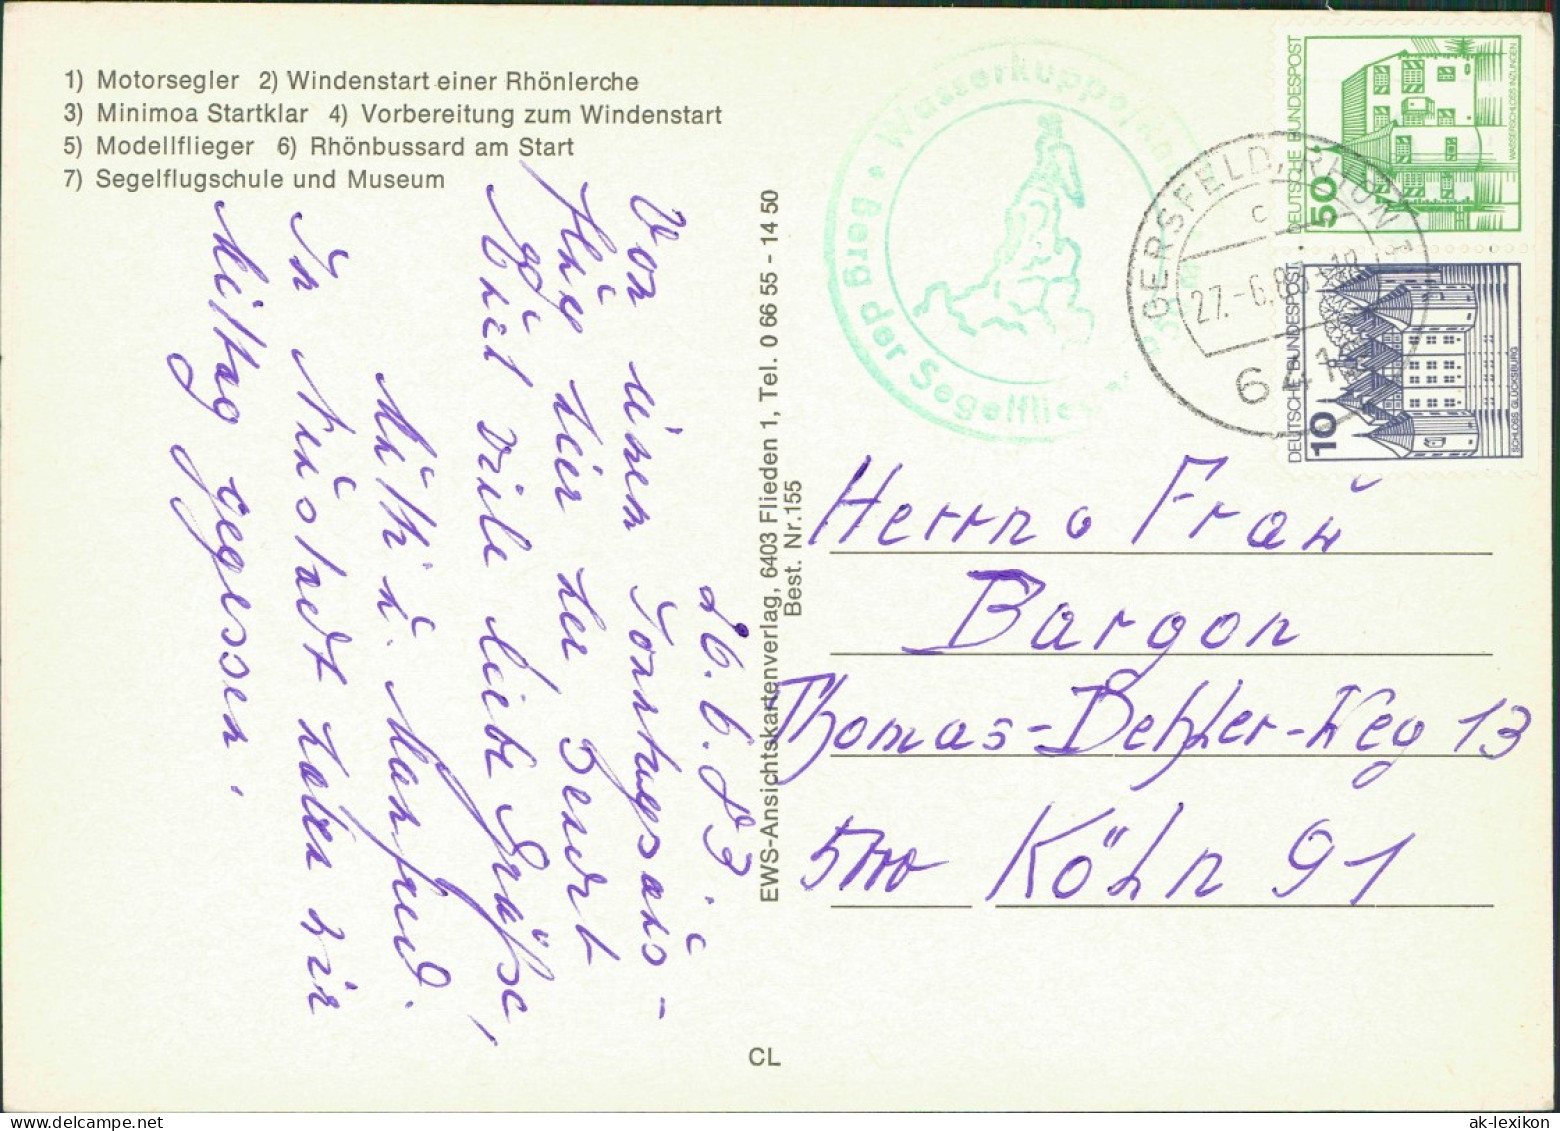 1) Motorsegler 2) Windenstart einer Rhönlerche
3) Minimoa Startklar 4) Vorbereitung zum Windenstart
5) Modellflieger 6) Rhönbussard am Start
7) Segelflugschule und Museum
26.6.83
Von einen Sonntagsaus-
flug hier her sendet
Euch viele liebe Grüße,
Manfred.
In Neustadt haben wir
Mittag gegessen.
EWS-Ansichtskartenverlag, 6403 Flieden 1, Tel. 0 66 55 - 14 50
Best. Nr. 155
CL
Wasserkuppe/Rhön
Berg der Segelflieger
GERSFELD, RHÖN 1
c
27.-6.83
641
DEUTSCHE BUNDESPOST
50
WASSERSCHLOSS INZLINGEN
DEUTSCHE BUNDESPOST
10
SCHLOSS GLÜCKSBURG
Herrn u Frau
Bargon
Thomas-Dehler-Weg 13
5000 Köln 91
ak-lexikon